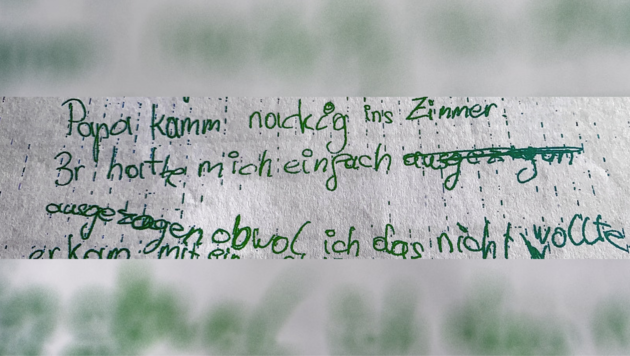 Papa kamm nackig ins Zimmer.
Br hatte mich einfach ausgezogen
ausgezogen obwol ich das nicht wollte
er kam mit ein